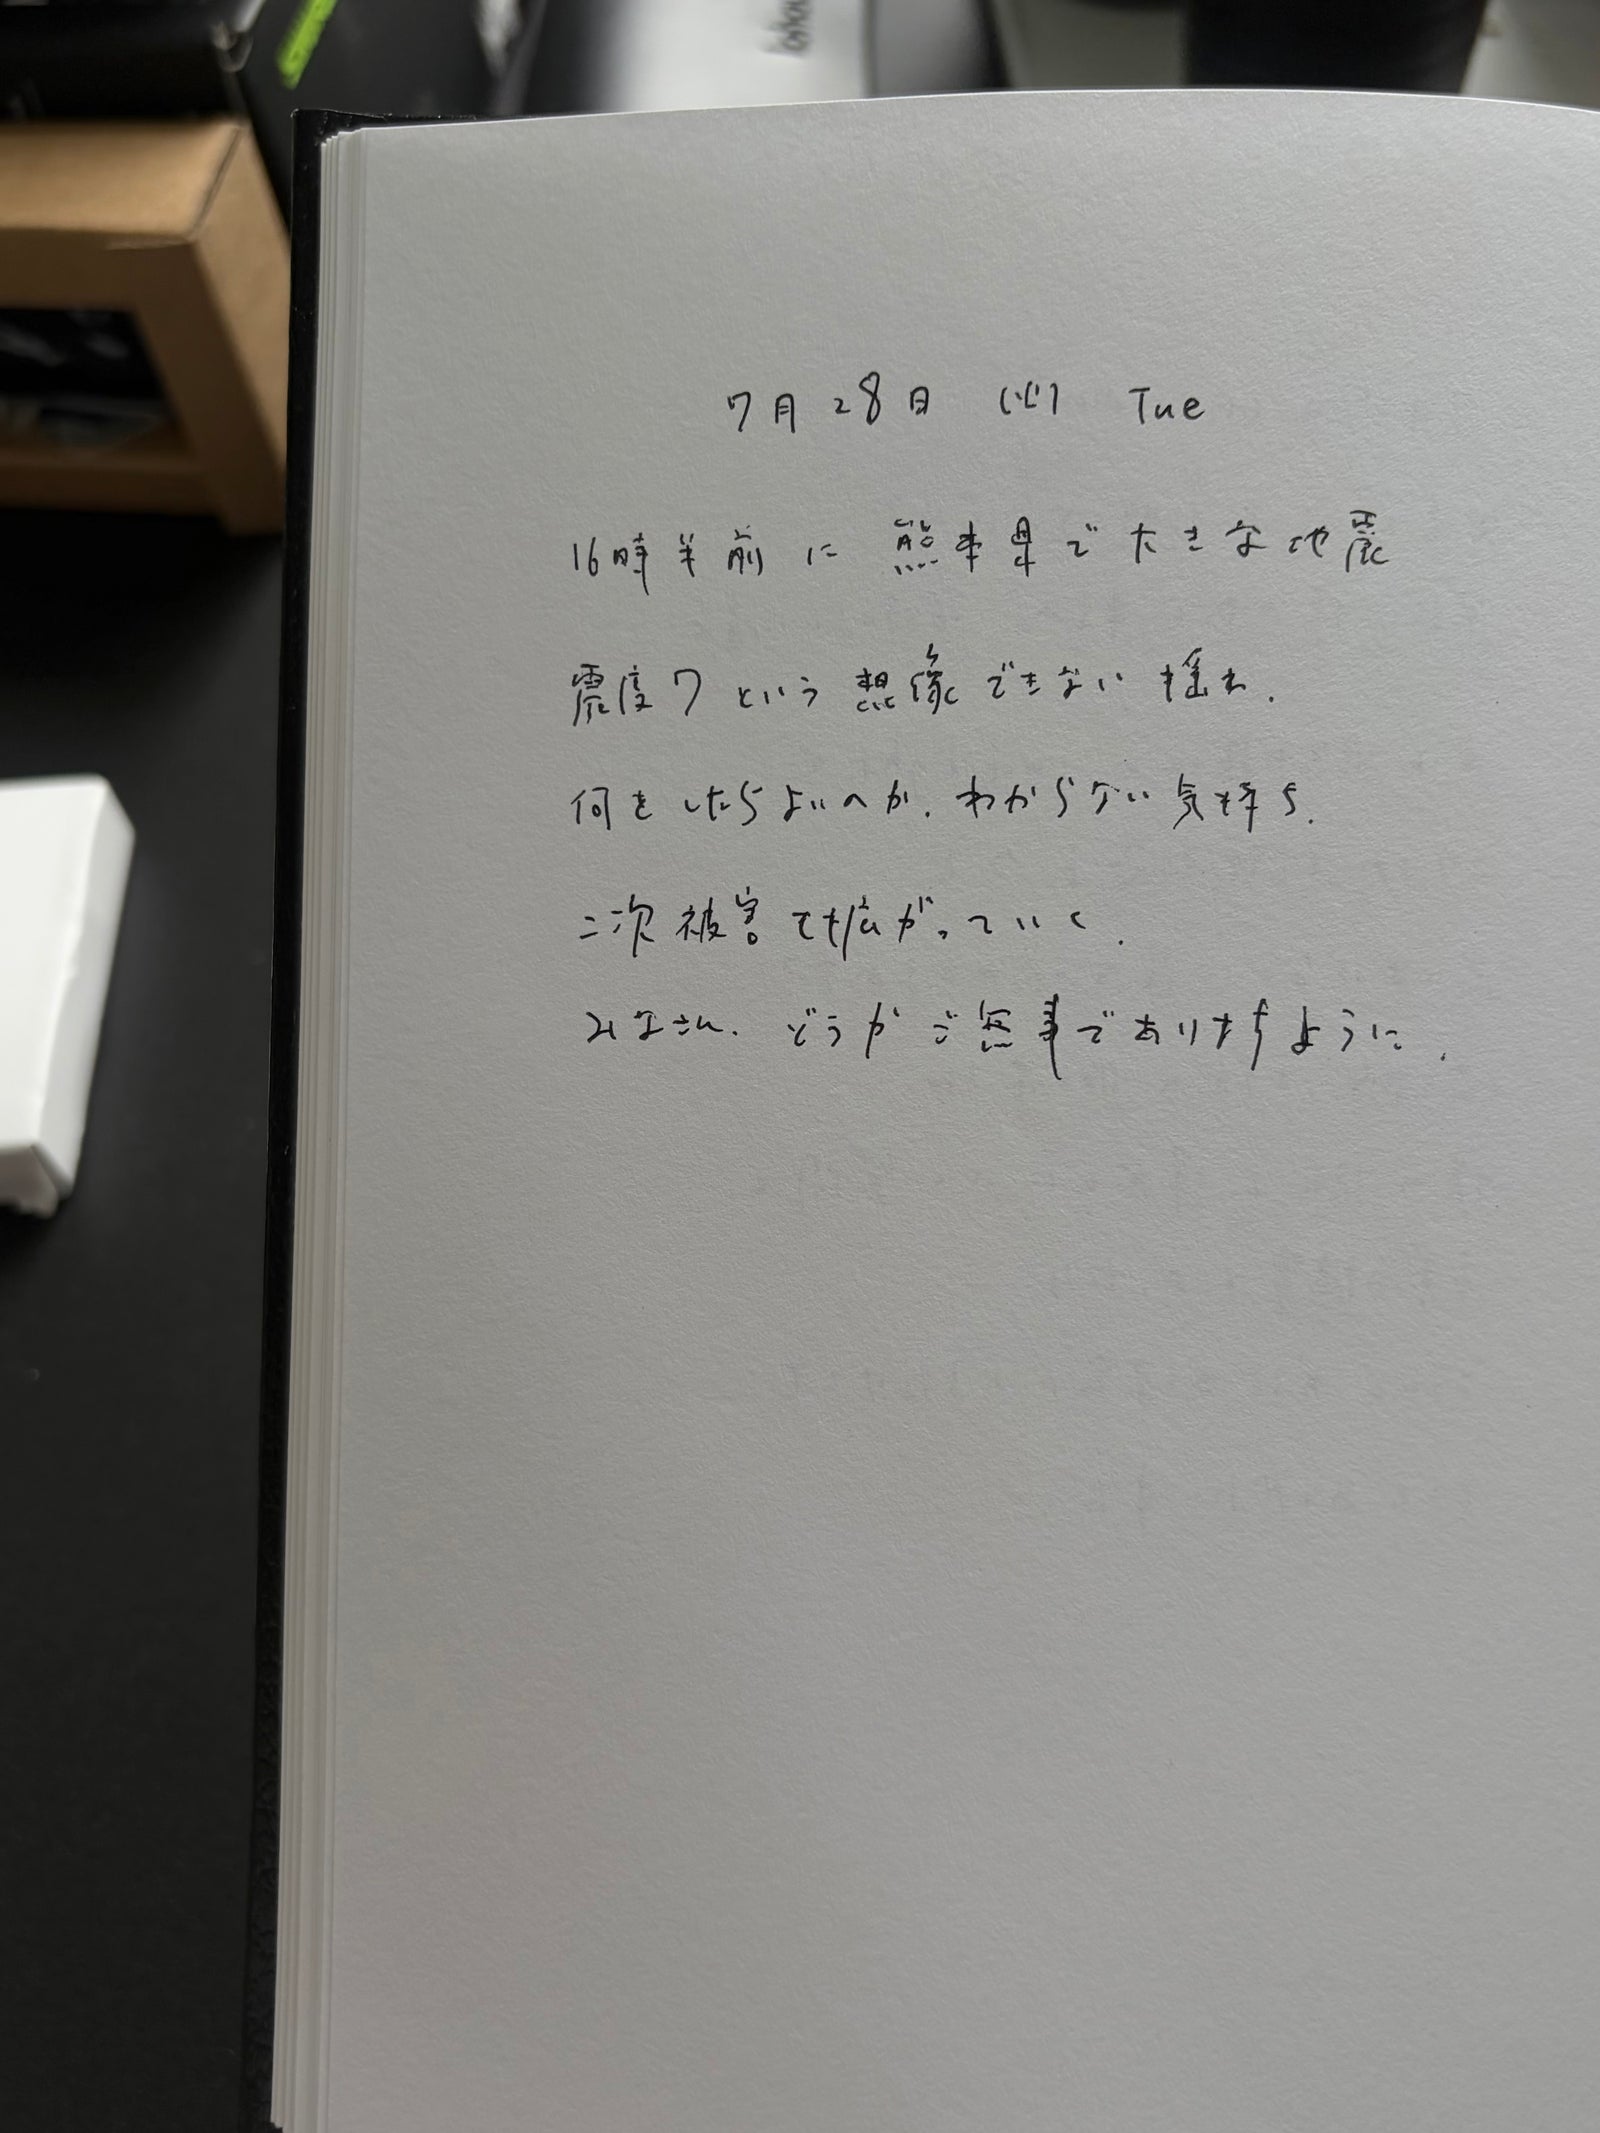 7月28日 (火) Tue
16時半前に 熊本県で大きな地震
震度7という想像できない揺れ.
何をしたらよいのか. わからない気持ち.
二次被害も拡がっていく.
みなさん. どうかご無事でありますように.